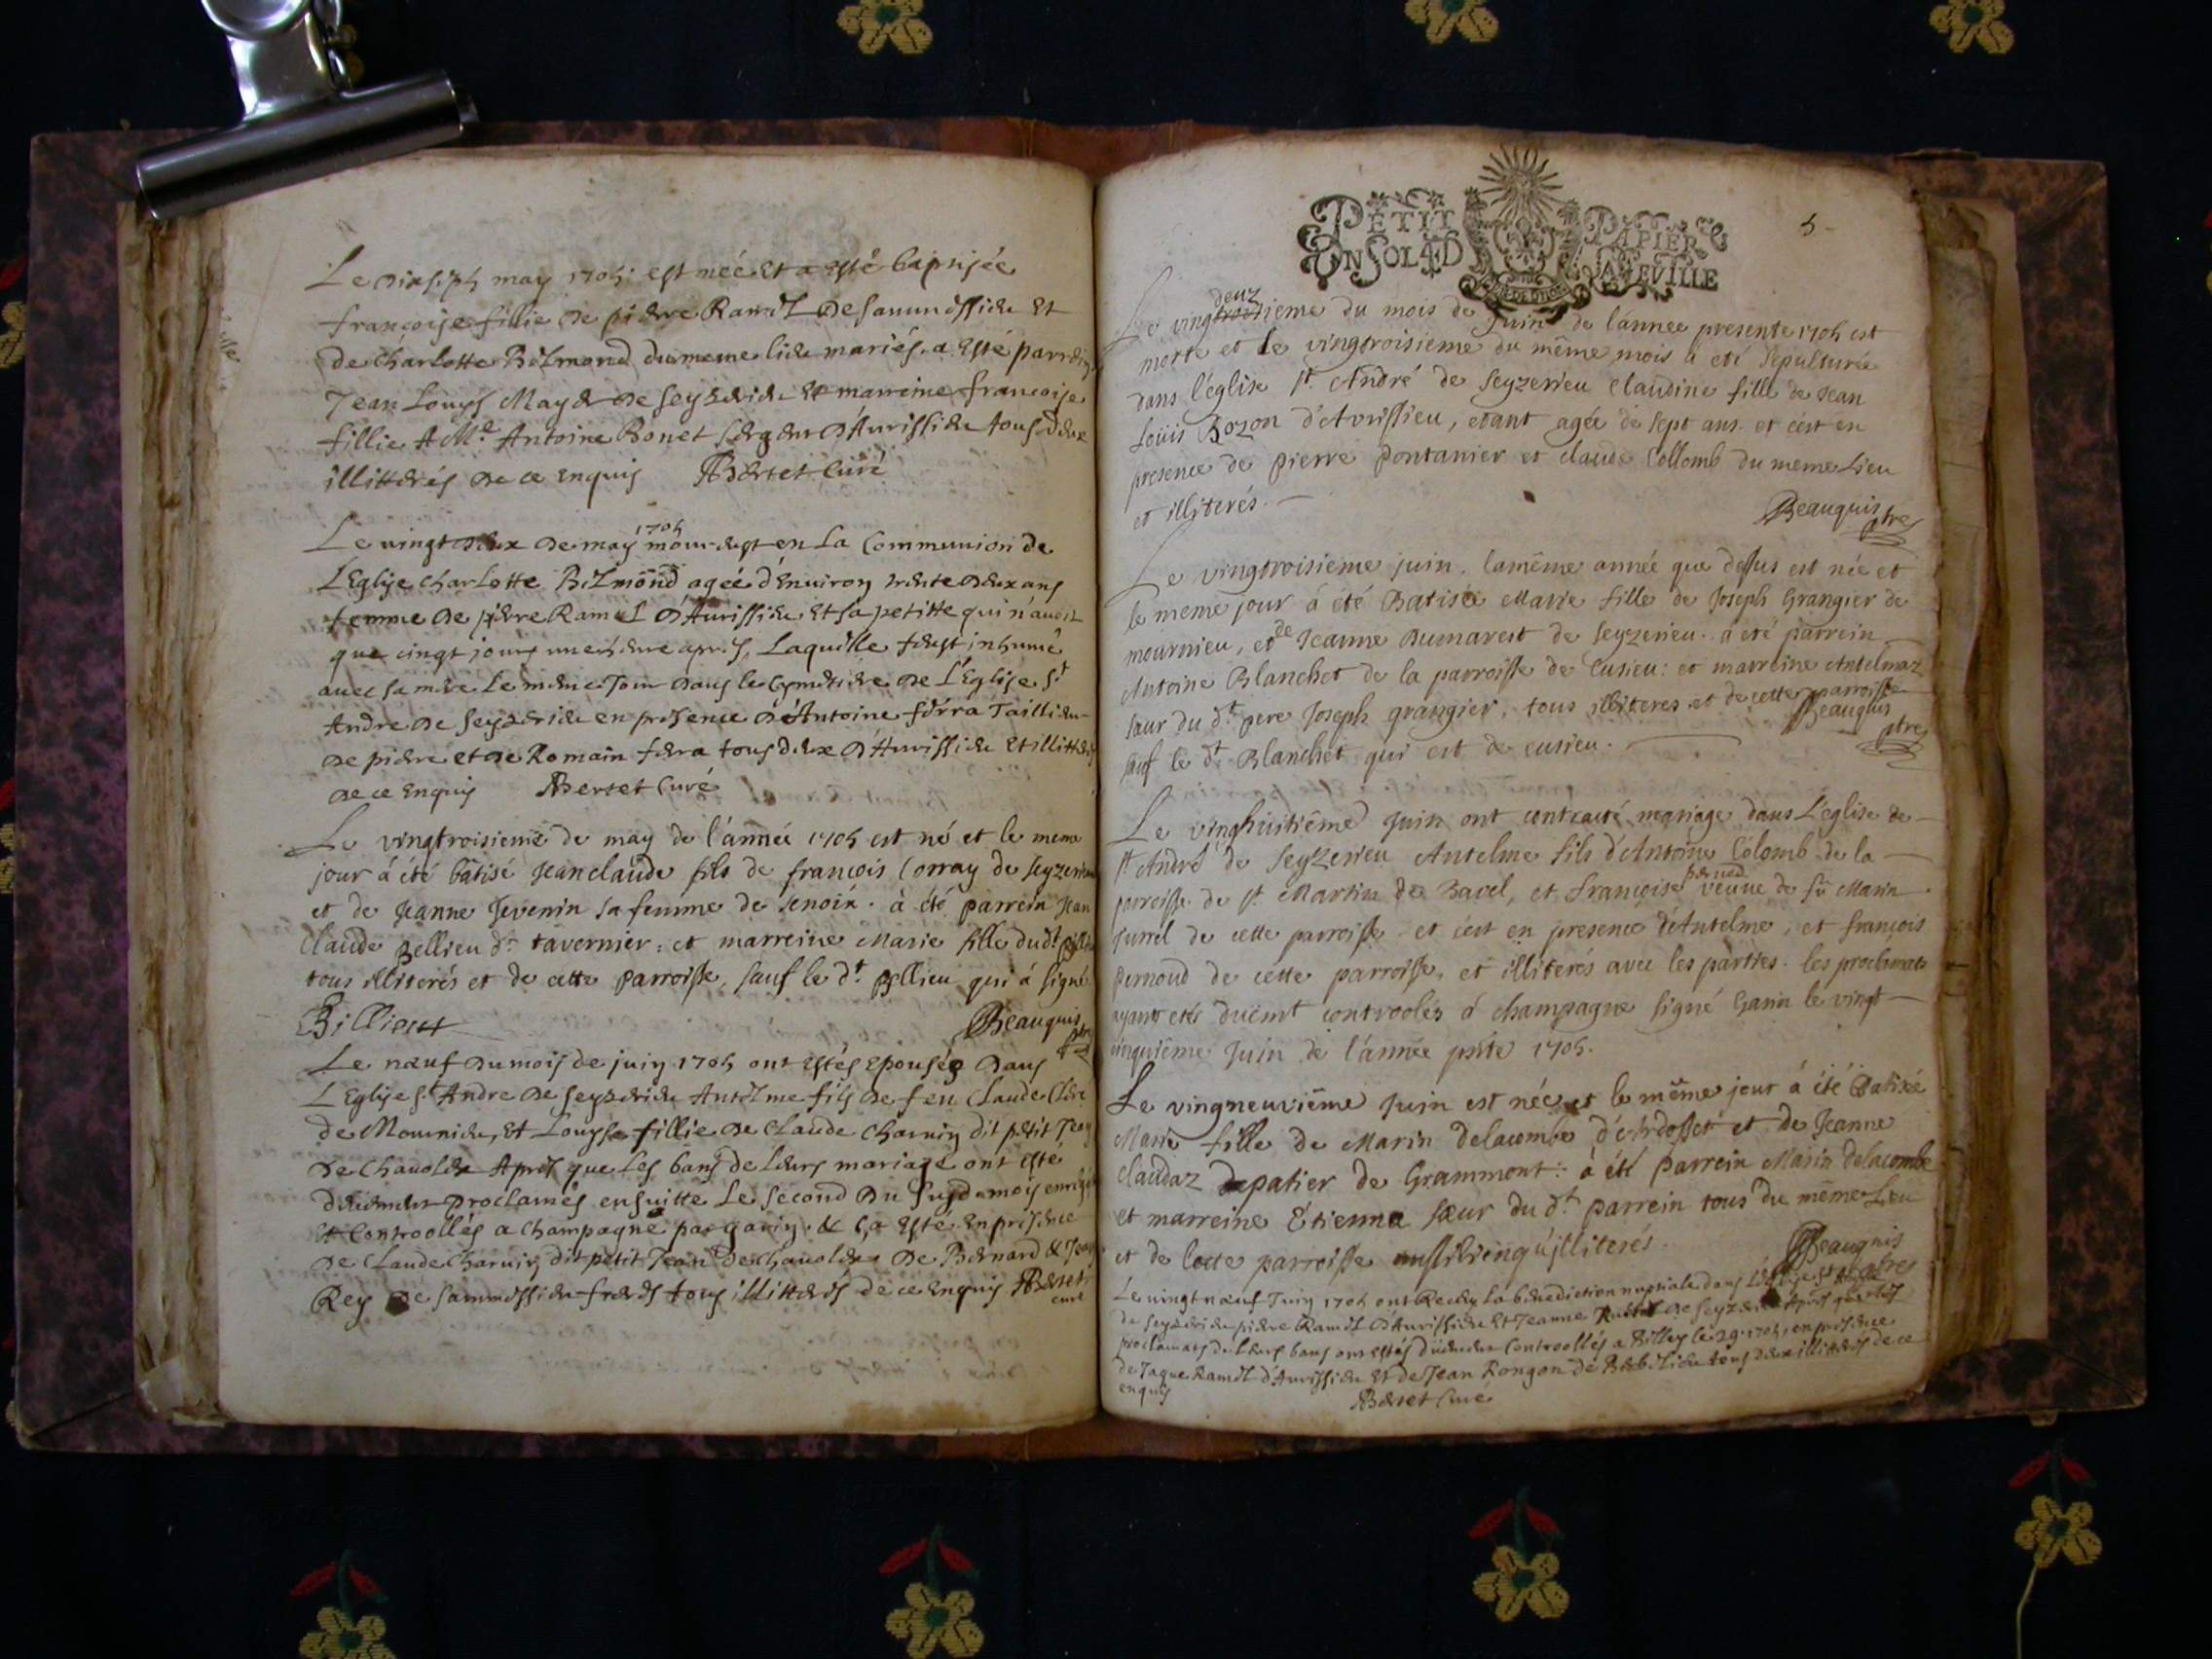 Le dixsept may 1705 est neé et a esté baptisée
françoise fillie de pierre Ramel de sammessieu et
de charlotte Belmond du meme lieu mariés. a esté parrein
Jean Louys May de seyzerieu et marreine francoise
fillie A Me Antoine Bonet d'Aurissieu tous deux
illitterés de ce enquis Berset Curé
Le vingt deux de may 1705 mourust en la Communion de
L'Eglise charlotte Belmond ageé d'environ trente deux ans
femme de pierre Ramel d'Aurissieu et sa petitte qui n'avoit
que cinqt jours une heure apres, Laquelle feust inhumé
avec sa mere le meme Jour dans le cymetiere de L'Eglise St
Andre de seyzerieu en presence d'Antoine ferra Taillieu
de pierre et de Romain ferra tous deux d'Aurissieu et illitterés
de ce enquis Berset Curé
Le vingtroisieme de may de l'année 1705 est né et le meme
jour à été bâtisé Jeanclaude fils de francois Corray de seyzerieu
et de Jeanne Jevenin sa femme de senoin. à été parrein Jean
Claude Bellieu dt tavernier: et marreine Marie fille dudt
tous illiterés et de cette parroisse, sauf le dt Bellieu qui à signé
Billieut Beauquis ptre
Le nœuf du mois de juin 1705 ont estés epousés dans
L'Eglise St Andre de seyzerieu Antelme fils de feu Claude
de Mournieu, et Louyse fillie de Claude Charvin dit petit Jean
de chavoley Apres que les bans de leurs mariage ont esté
deuement proclamés ensuitte le second du susd. mois
et Controollés a Champagne par garin. & ça esté en presence
de Claude Charvin dit petit Jean de chavoley de Bernard & Jean
Rey de sammessieu freres tous illitterés de ce enquis Berset
curé
PETIT PAPIER
UN SOL 4 D LA FEVILLE
5
Le vingt deux ieme du mois de Juin de l'année presente 1705 est
morte et le vingtroisieme du même mois a eté sepulturée
dans l'église St André de seyzerieu Claudine fille de Jean
Loüis Bozon d'Avrissieu, etant agée de sept ans. et c'est en
presence de pierre pontanier et claude Collomb du meme Lieu
et illiterés.
Beauquis ptre
Le vingtroisieme juin. lamême année que dessus est née et
le meme jour à été Batisée Marie fille de Joseph Grangier de
mournieu, et de Jeanne Dumarest de seyzerieu. a eté parrein
Antoine Blanchet de la parroisse de Cusieu: et marreine Antelmaz
sœur du dt pere Joseph grangier, tous illiteres et de cette parroisse
sauf le dt Blanchet qui est de cusieu. Beauquis
ptre
Le vinghuitiême Juin ont contracté mariage dans L'église de
St André de Seyzerieu Antelme fils d'Antoine Colomb de la
parroisse de St Martin de Bavel, et françoise pernod veuve de fû Marin
Jurrel de cette parroisse et c'est en presence d'Antelme, et françois
pernoud de cette parroisse, et illiterés avec les parties. les proclamats
ayant etés duëmt controolés à champagne signé Garin le vingt
cinquiême Juin de l'année pnte 1705.
Le vingneuviême Juin est née et le même jour à été Batisée
Marie fille de Marin delacombe d'Ardosset et de Jeanne
Claudaz depatier de Grammont: à été parrein Marin delacombe
et marreine Étienna sœur du dt parrein tous du même Lieu
et de cette parroisse aussibienqu'illiterés. Beauquis
ptre
Le vingt nœuf Juin 1705 ont Receu la benediction nuptiale dans L'Eglise St Andre
de seyzerieu pierre Ramel d'Aurissieu et Jeanne de seyzerieu Apres que les
proclamats de leurs bans ont estés deuement Controollés a Billey le 29. 1705, en presence
de Jaque Ramel d'Aurissieu et de Jean Rongon de tous deux illitterés de ce
enquis
Berset Curé